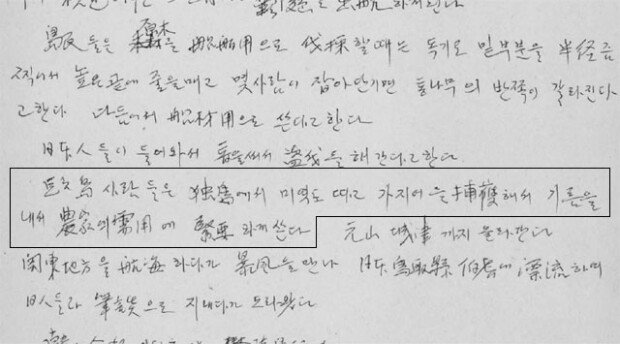 島民들은 을 船舶用으로 伐採할때는 독기로 밑부분을 半径즘
찍어서 높은곳에 줄을매고 몇사람이 잡아단기면 통나무의 반쪽이 갈라진다
고한다 다듬어서 船材用으로 쓴다고한다
日本人들이 들어와서 톱을써서 盜伐을 해간다고한다.
巨文島 사람들은 独島에서 미역도 따고 가지어을 捕獲해서 기름을
내서 農家의需用에 緊要하게쓴다 元山 城津 까지 올라간다
関東地方을 航海하다가 暴風을만나 日本鳥取縣 伯耆에 漂流하여
日人들과 筆談으로 지내다가 도라왔다